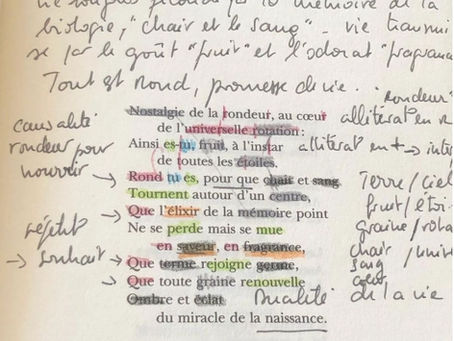 de la mémoire de la
biologie, "chair et le sang" - vie transmi
se par le goût "fruit" et l'odorat "fragrance
Tout est Rond, promesse de vie.
rondeur"
Nostalgie de la rondeur, au cœur
allitérat en r
causalité
de l'universelle rotation :
rondeur pour
Ainsi es-tu, fruit, à l'instar
allitérat en t → inte
nourrir
de toutes les étoiles.
→ Rond tu es, pour que chair et sang
Terre / ciel
Tournent autour d'un centre,
fruit / étoi
→ Que l'élixir de la mémoire point
graine / rota
répétit
Ne se perde mais se mue
chair / unive
en saveur, en fragrance,
sang
→ souhait → Que terme rejoigne germe,
cœur
Que toute graine renouvelle
Ombre et éclat
dualité de la vie
du miracle de la naissance.